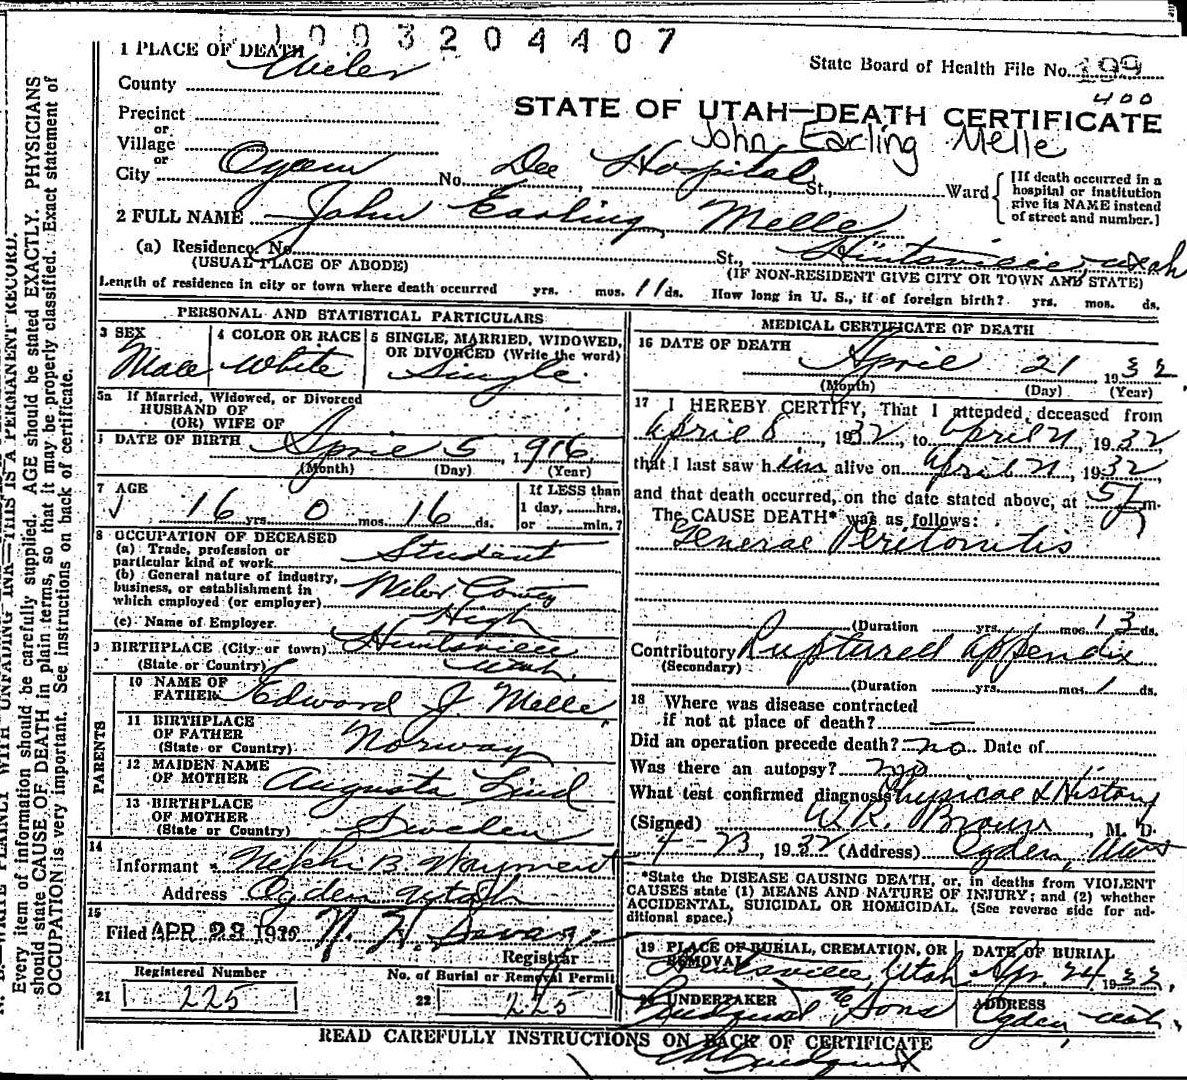 1003204407
1 PLACE OF DEATH
State Board of Health File No. 199
County Weber
400
STATE OF UTAH—DEATH CERTIFICATE
Precinct
John Earling Melle
or
Village
or
City Ogden No. Dee Hospital St., Ward
[If death occurred in a
hospital or institution
give its NAME instead
of street and number.]
2 FULL NAME John Earling Melle
(a) Residence. No. St., Huntsville, Utah
(USUAL PLACE OF ABODE) (IF NON-RESIDENT GIVE CITY OR TOWN AND STATE)
Length of residence in city or town where death occurred yrs. mos. 11 ds. How long in U. S., if of foreign birth? yrs. mos. ds.
PERSONAL AND STATISTICAL PARTICULARS
3 SEX 4 COLOR OR RACE 5 SINGLE, MARRIED, WIDOWED,
OR DIVORCED (Write the word)
Male White Single
5a If Married, Widowed, or Divorced
HUSBAND OF
(OR) WIFE OF
DATE OF BIRTH April 5, 1916
(Month) (Day) (Year)
7 AGE If LESS than
16 yrs. 0 mos. 16 ds. 1 day, hrs.
or min.?
8 OCCUPATION OF DECEASED
(a) Trade, profession or
particular kind of work Student
(b) General nature of industry,
business, or establishment in
which employed (or employer) Weber County
High
(c) Name of Employer
9 BIRTHPLACE (City or town) Huntsville
(State or Country) Utah.
PARENTS
10 NAME OF
FATHER Edward J. Melle
11 BIRTHPLACE
OF FATHER
(State or Country) Norway
12 MAIDEN NAME
OF MOTHER Augusta Lind
13 BIRTHPLACE
OF MOTHER
(State or Country) Sweden
14
Informant B. Wayment
Address Ogden Utah
15
Filed APR 23 19
Registrar
Registered Number No. of Burial or Removal Permit
21 225 22 225
MEDICAL CERTIFICATE OF DEATH
16 DATE OF DEATH
April 21 1932
(Month) (Day) (Year)
17 I HEREBY CERTIFY, That I attended deceased from
April 8, 1932, to April 21, 1932
that I last saw him alive on April 21, 1932
and that death occurred, on the date stated above, at 5 m.
The CAUSE DEATH* was as follows:
General Peritonitis
(Duration yrs. mos. 13 ds.
Contributory Ruptured appendix
(Secondary)
(Duration yrs. mos. 1 ds.
18 Where was disease contracted
if not at place of death? —
Did an operation precede death? no Date of
Was there an autopsy? no
What test confirmed diagnosis Physical & History
(Signed) W. R. Brown, M. D.
4-23, 1932 (Address) Ogden, Utah
*State the DISEASE CAUSING DEATH, or, in deaths from VIOLENT
CAUSES state (1) MEANS AND NATURE OF INJURY; and (2) whether
ACCIDENTAL, SUICIDAL OR HOMICIDAL. (See reverse side for ad-
ditional space.)
19 PLACE OF BURIAL, CREMATION, OR DATE OF BURIAL
REMOVAL
Huntsville, Utah Apr. 24 1932
20 UNDERTAKER ADDRESS
& Sons Ogden Utah
READ CAREFULLY INSTRUCTIONS ON BACK OF CERTIFICATE
Every item of information should be carefully supplied. AGE should be stated EXACTLY. PHYSICIANS
should state CAUSE OF DEATH in plain terms, so that it may be properly classified. Exact statement of
OCCUPATION is very important. See instructions on back of certificate.
WRITE PLAINLY WITH UNFADING INK—THIS IS A PERMANENT RECORD.